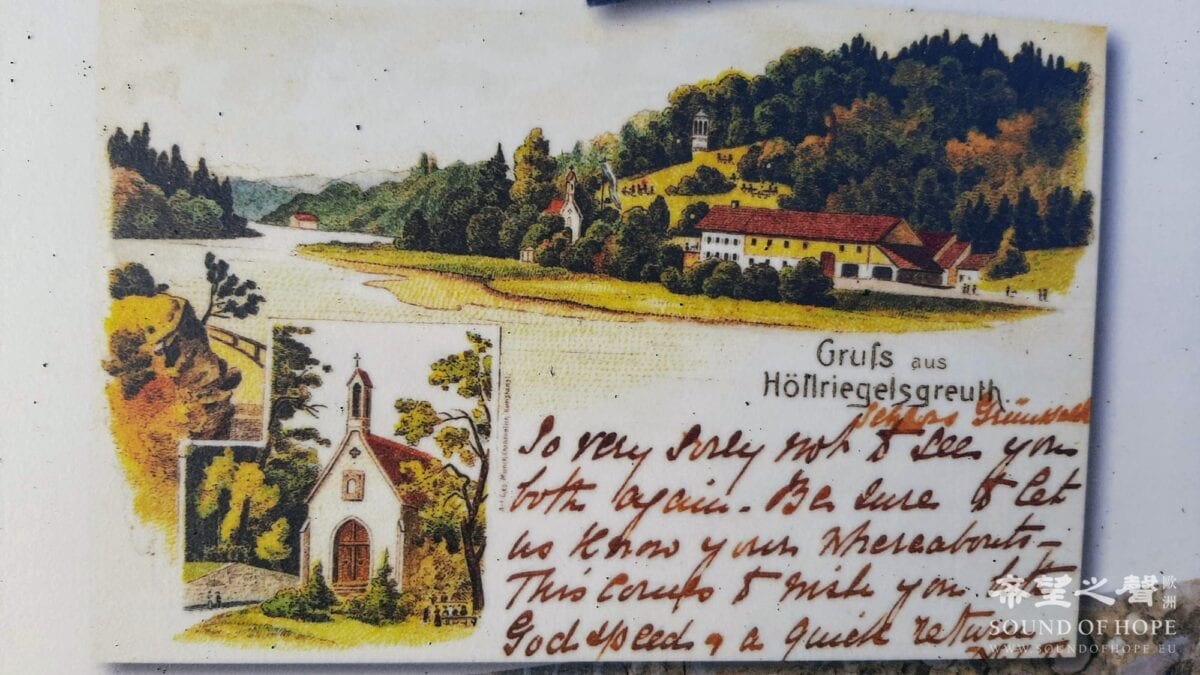 Gruß aus
Höllriegelsgreuth
Schloss
So very sorry not to see you
both again. Be sure to let
us know your whereabouts—
This comes to wish you both
God speed & a quick return
希望之聲
歐洲
SOUND OF HOPE
WWW.SOUNDOFHOPE.EU